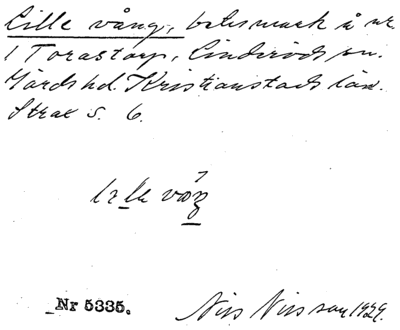 Lille vång, betesmark å nr.
1 Torastorp, Linderöds sn.
Gärds hd. Kristianstads län.
Strax S. 6.
Nr 5335.
Nils Nilsson 1929.